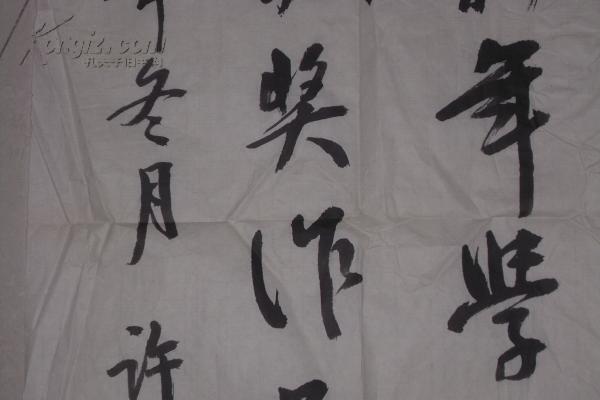 年學
奖作
冬月 许
Kongfz.com
孔夫子旧书网